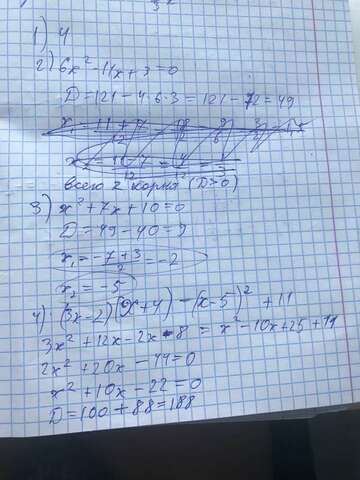 1) 4
2) 6x² - 11x + 3 = 0
D = 121 - 4·6·3 = 121 - 72 = 49
всего 2 корня (D>0)
3) x² + 7x + 10 = 0
D = 49 - 40 = 9
x₁ = -7+3/2 = -2
x₂ = -5
4) (3x-2)(x+4) - (x-5)² + 11
3x² + 12x - 2x - 8 = x² - 10x + 25 + 11
2x² + 20x - 44 = 0
x² + 10x - 22 = 0
D = 100 + 88 = 188